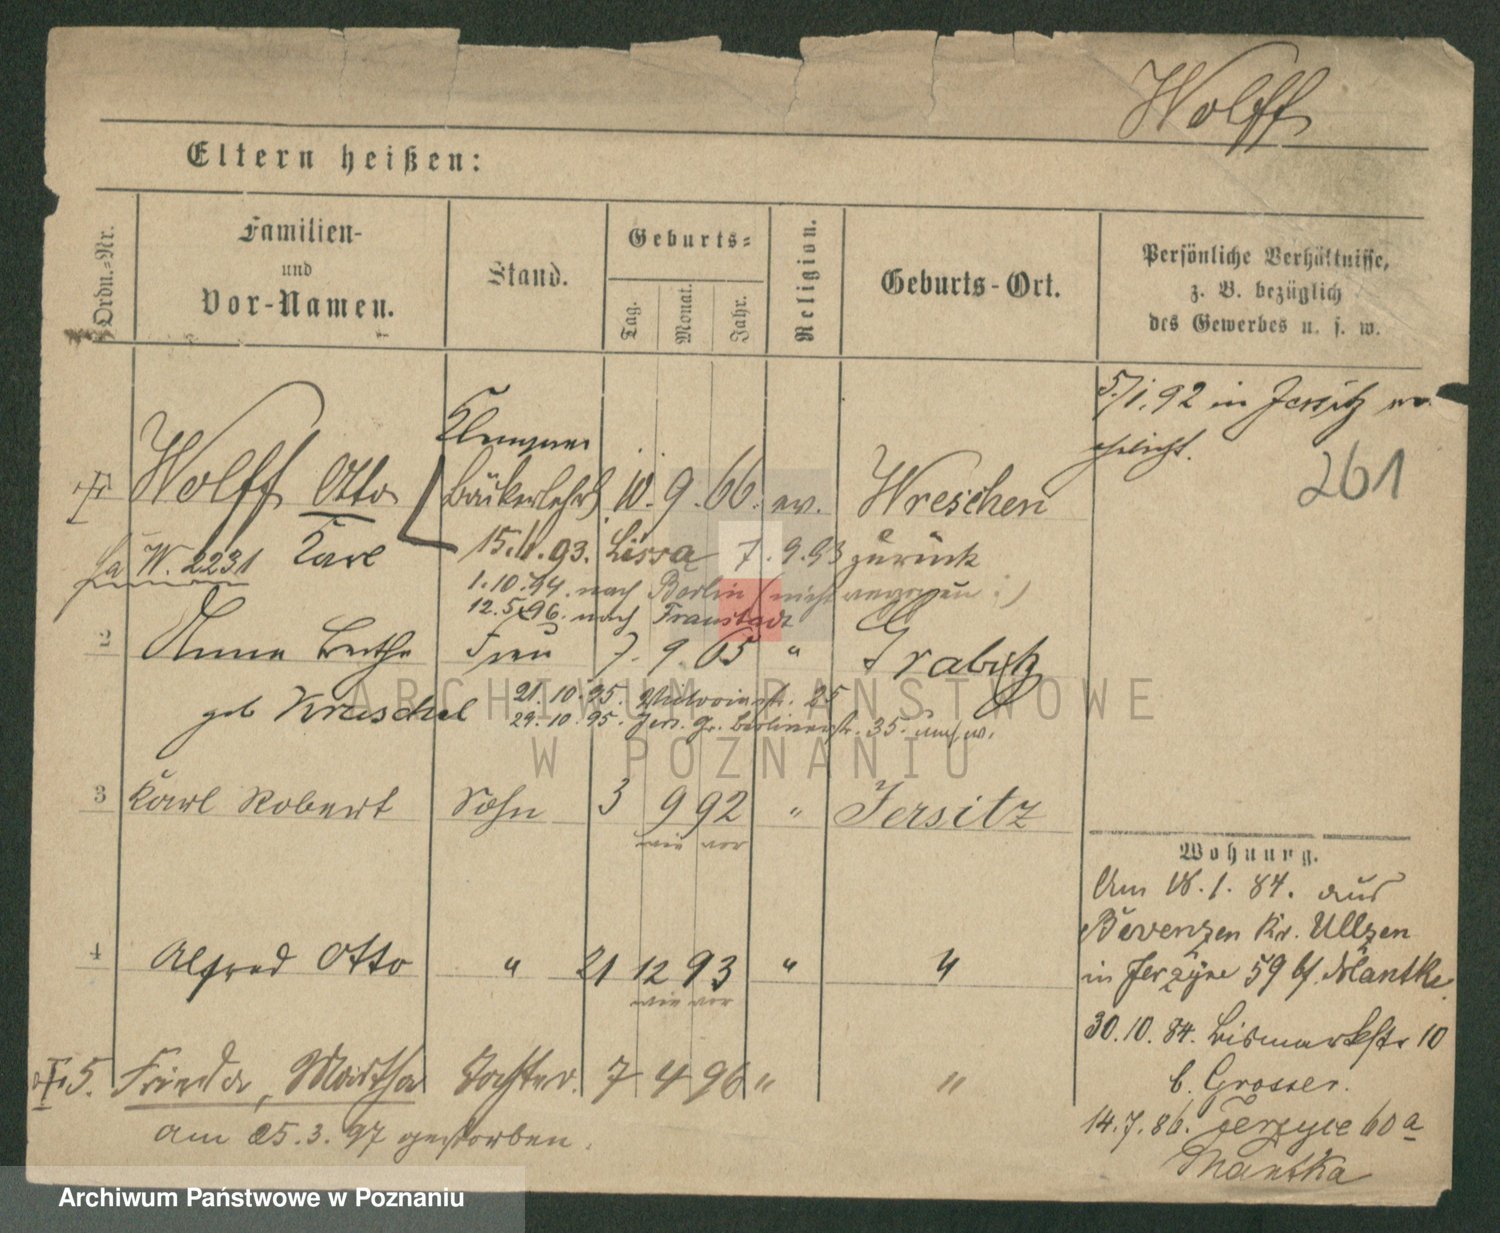 Wolff
Eltern heißen:
Ordn.-Nr.
Familien-
und
Vor-Namen.
Stand.
Geburts-
Tag.
Monat.
Jahr.
Religion.
Geburts-Ort.
Persönliche Verhältnisse,
z. B. bezüglich
des Gewerbes u. s. w.
5/1.92 in Jersitz
ehelicht.
261
Klempner
Wolff Otto Bäckerlehrl 10. 9. 66. ev. Wreschen
W. 2231 Karl 15. 93. Lissa 7. 9. 93 zurück
1.10.94. nach Berlin (nicht
12.5.96. nach Fraustadt
2 Anna Bertha Frau 7. 9. 65 " Grabitz
geb Kruschel 21.10.95. 25
29.10.95. Jers. Gr. Berlinerstr. 35.
3 Karl Robert Sohn 3 9 92 " Jersitz
wie vor
4 Alfred Otto " 21 12 93 " "
wie vor
5. Frieda, Martha Tochter. 7 4 96 " "
am 25.3.97 gestorben.
Wohnung.
Am 18.1.84. aus
Bevenzen Kr. Ullzen
in Jerzyce 59 b/ Mantke.
30.10.84. Bismarckstr 10
b. Grosser.
14.7.86. Jerzyce 60a
Mantka
ARCHIWUM PAŃSTWOWE
W POZNANIU
Archiwum Państwowe w Poznaniu